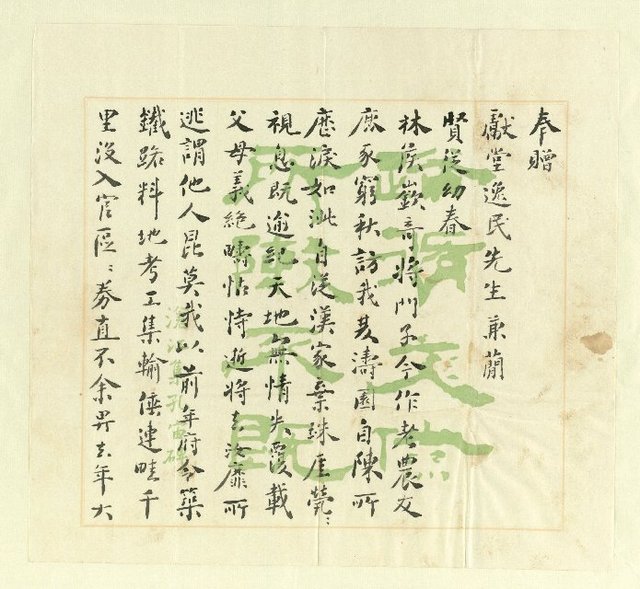 奉贈
獻堂逸民先生兼簡
賢從幼春
林侯嶔奇將門子今作老農友
麋豕窮秋訪我菱濤園自陳所
歷淚如泚自從漢家棄珠厓煢〻
視息既逾紀天地無情失覆載
父母義絕疇怙恃逝將去汝靡所
逃謂他人昆莫我以前年府令築
鐵路料地考工集輸倕連畦千
里沒入官區〻券直不余畀去年大
集孔宙碑